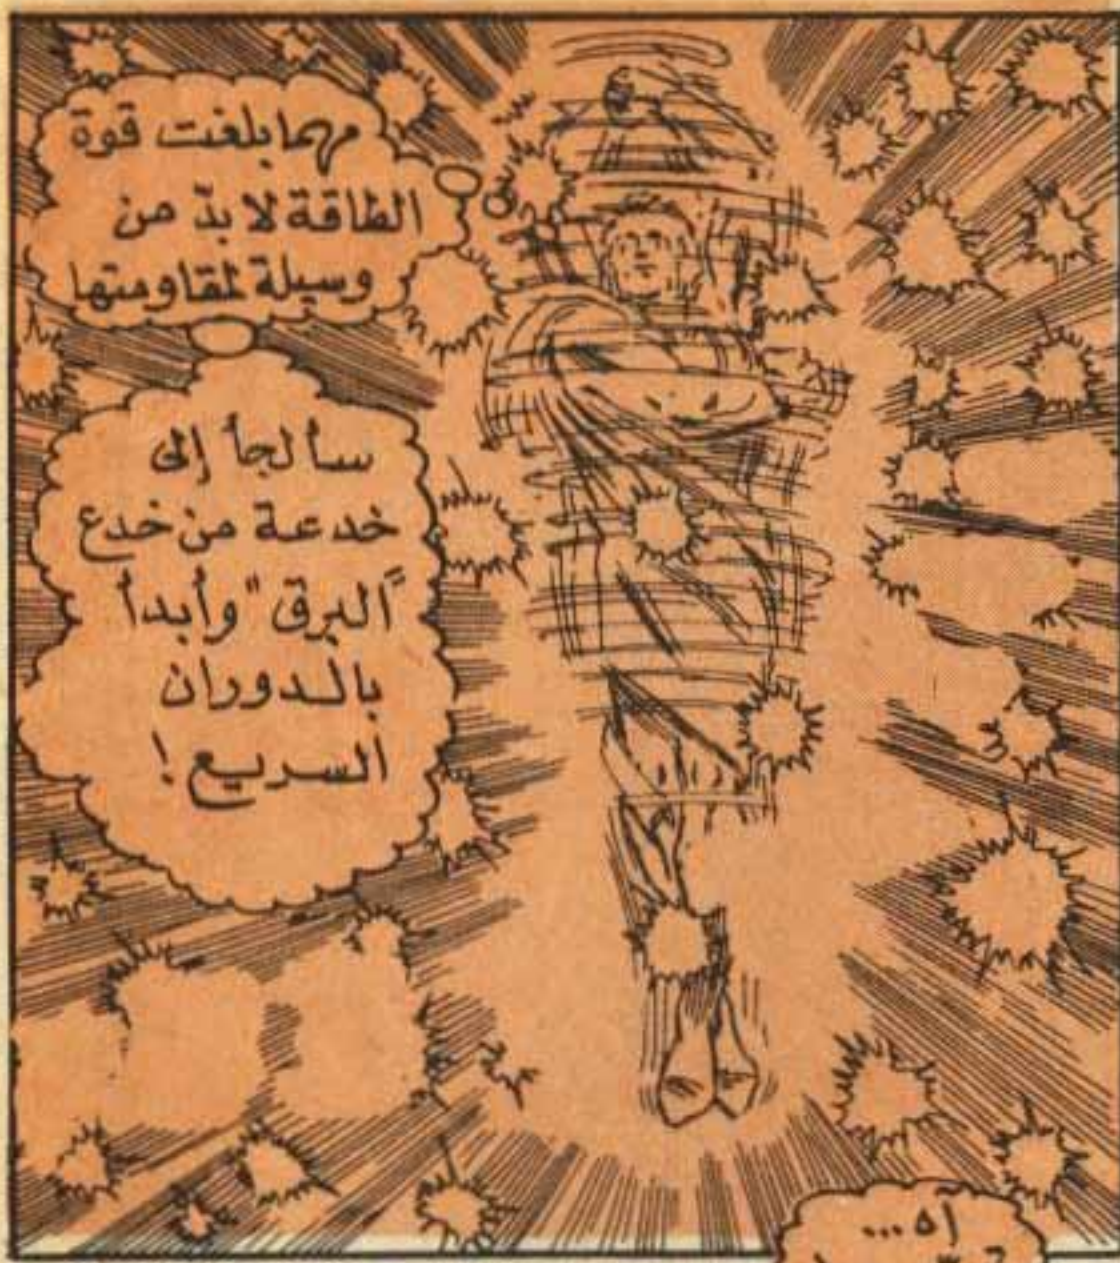 مهما بلغت قوة
الطاقة لا بدّ من
وسيلة لمقاومتها
سألجأ إلى
خدعة من خدع
"البرق" وأبدأ
بالدوران
السريع!
آه...